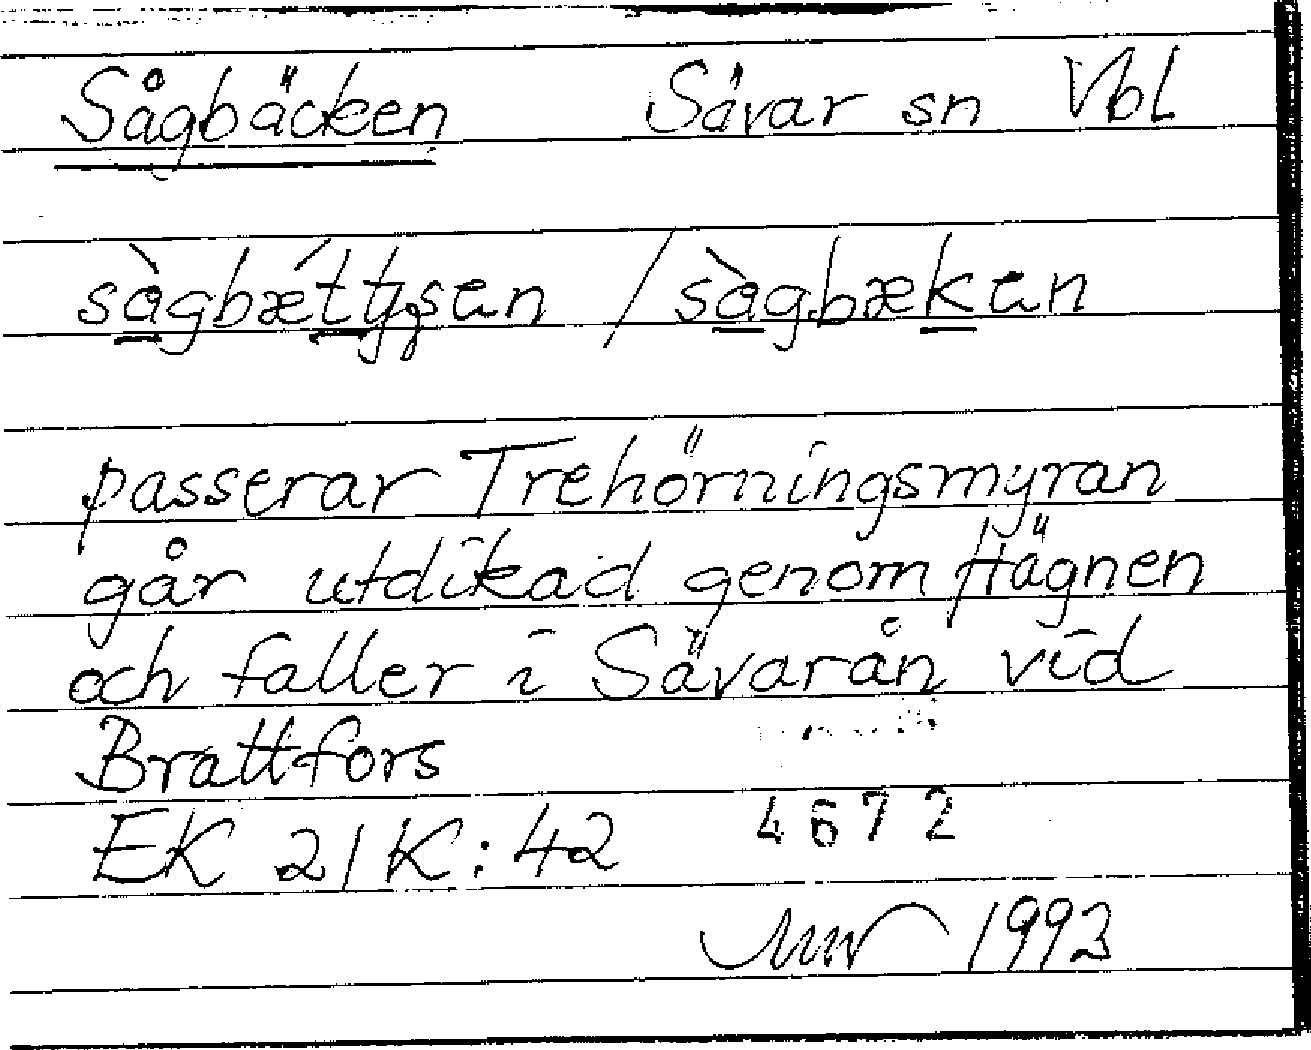 Sågbäcken Sävar sn Vbl
sàgbæ̀ttjsen / sàgbæken
passerar Trehörningsmyran
går utdikad genom Hägnen
och faller i Sävarån vid
Brattfors
EK 21K:42 4672
1993